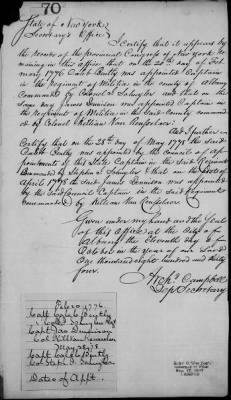 70
State of New York
Secretary's Office
I certify that it appears by
the records of the Provincial Congress of New York re-
maining in this office that on the 20th day of Feb-
ruary 1776 was appointed Captain
in the Regiment of Militia in the county of Albany
commanded by Colonel Schuyler and that on the
same day James Dennison was appointed Captain in
the Regiment of Militia in the said county command-
ed by Colonel Killian Van Rensselaer.
And I further
Certify that on the 28th day of May 1778 the said
was appointed by the Council of Ap-
pointment of this State Captain in the said Regiment
Commanded by Stephen J. Schuyler and that on the
April 1778 the said James Dennison was appointed
by the said Council Captain in the said Regiment
commanded by Killian Van Rensselaer
Given under my hand and the Seal
of this office at the City of
Albany the Eleventh day of
October in the year of our Lord
One thousand eight hundred and thirty
four.
Archd. Campbell
Dep Secretary
Feb 20 1776
Capt
Col Schuyler Reg
Capt Jas Dennison
Col Killian Rensselaer
May 28 78
Capt
Col Steph. J. Schuyler
Dates of Appt.